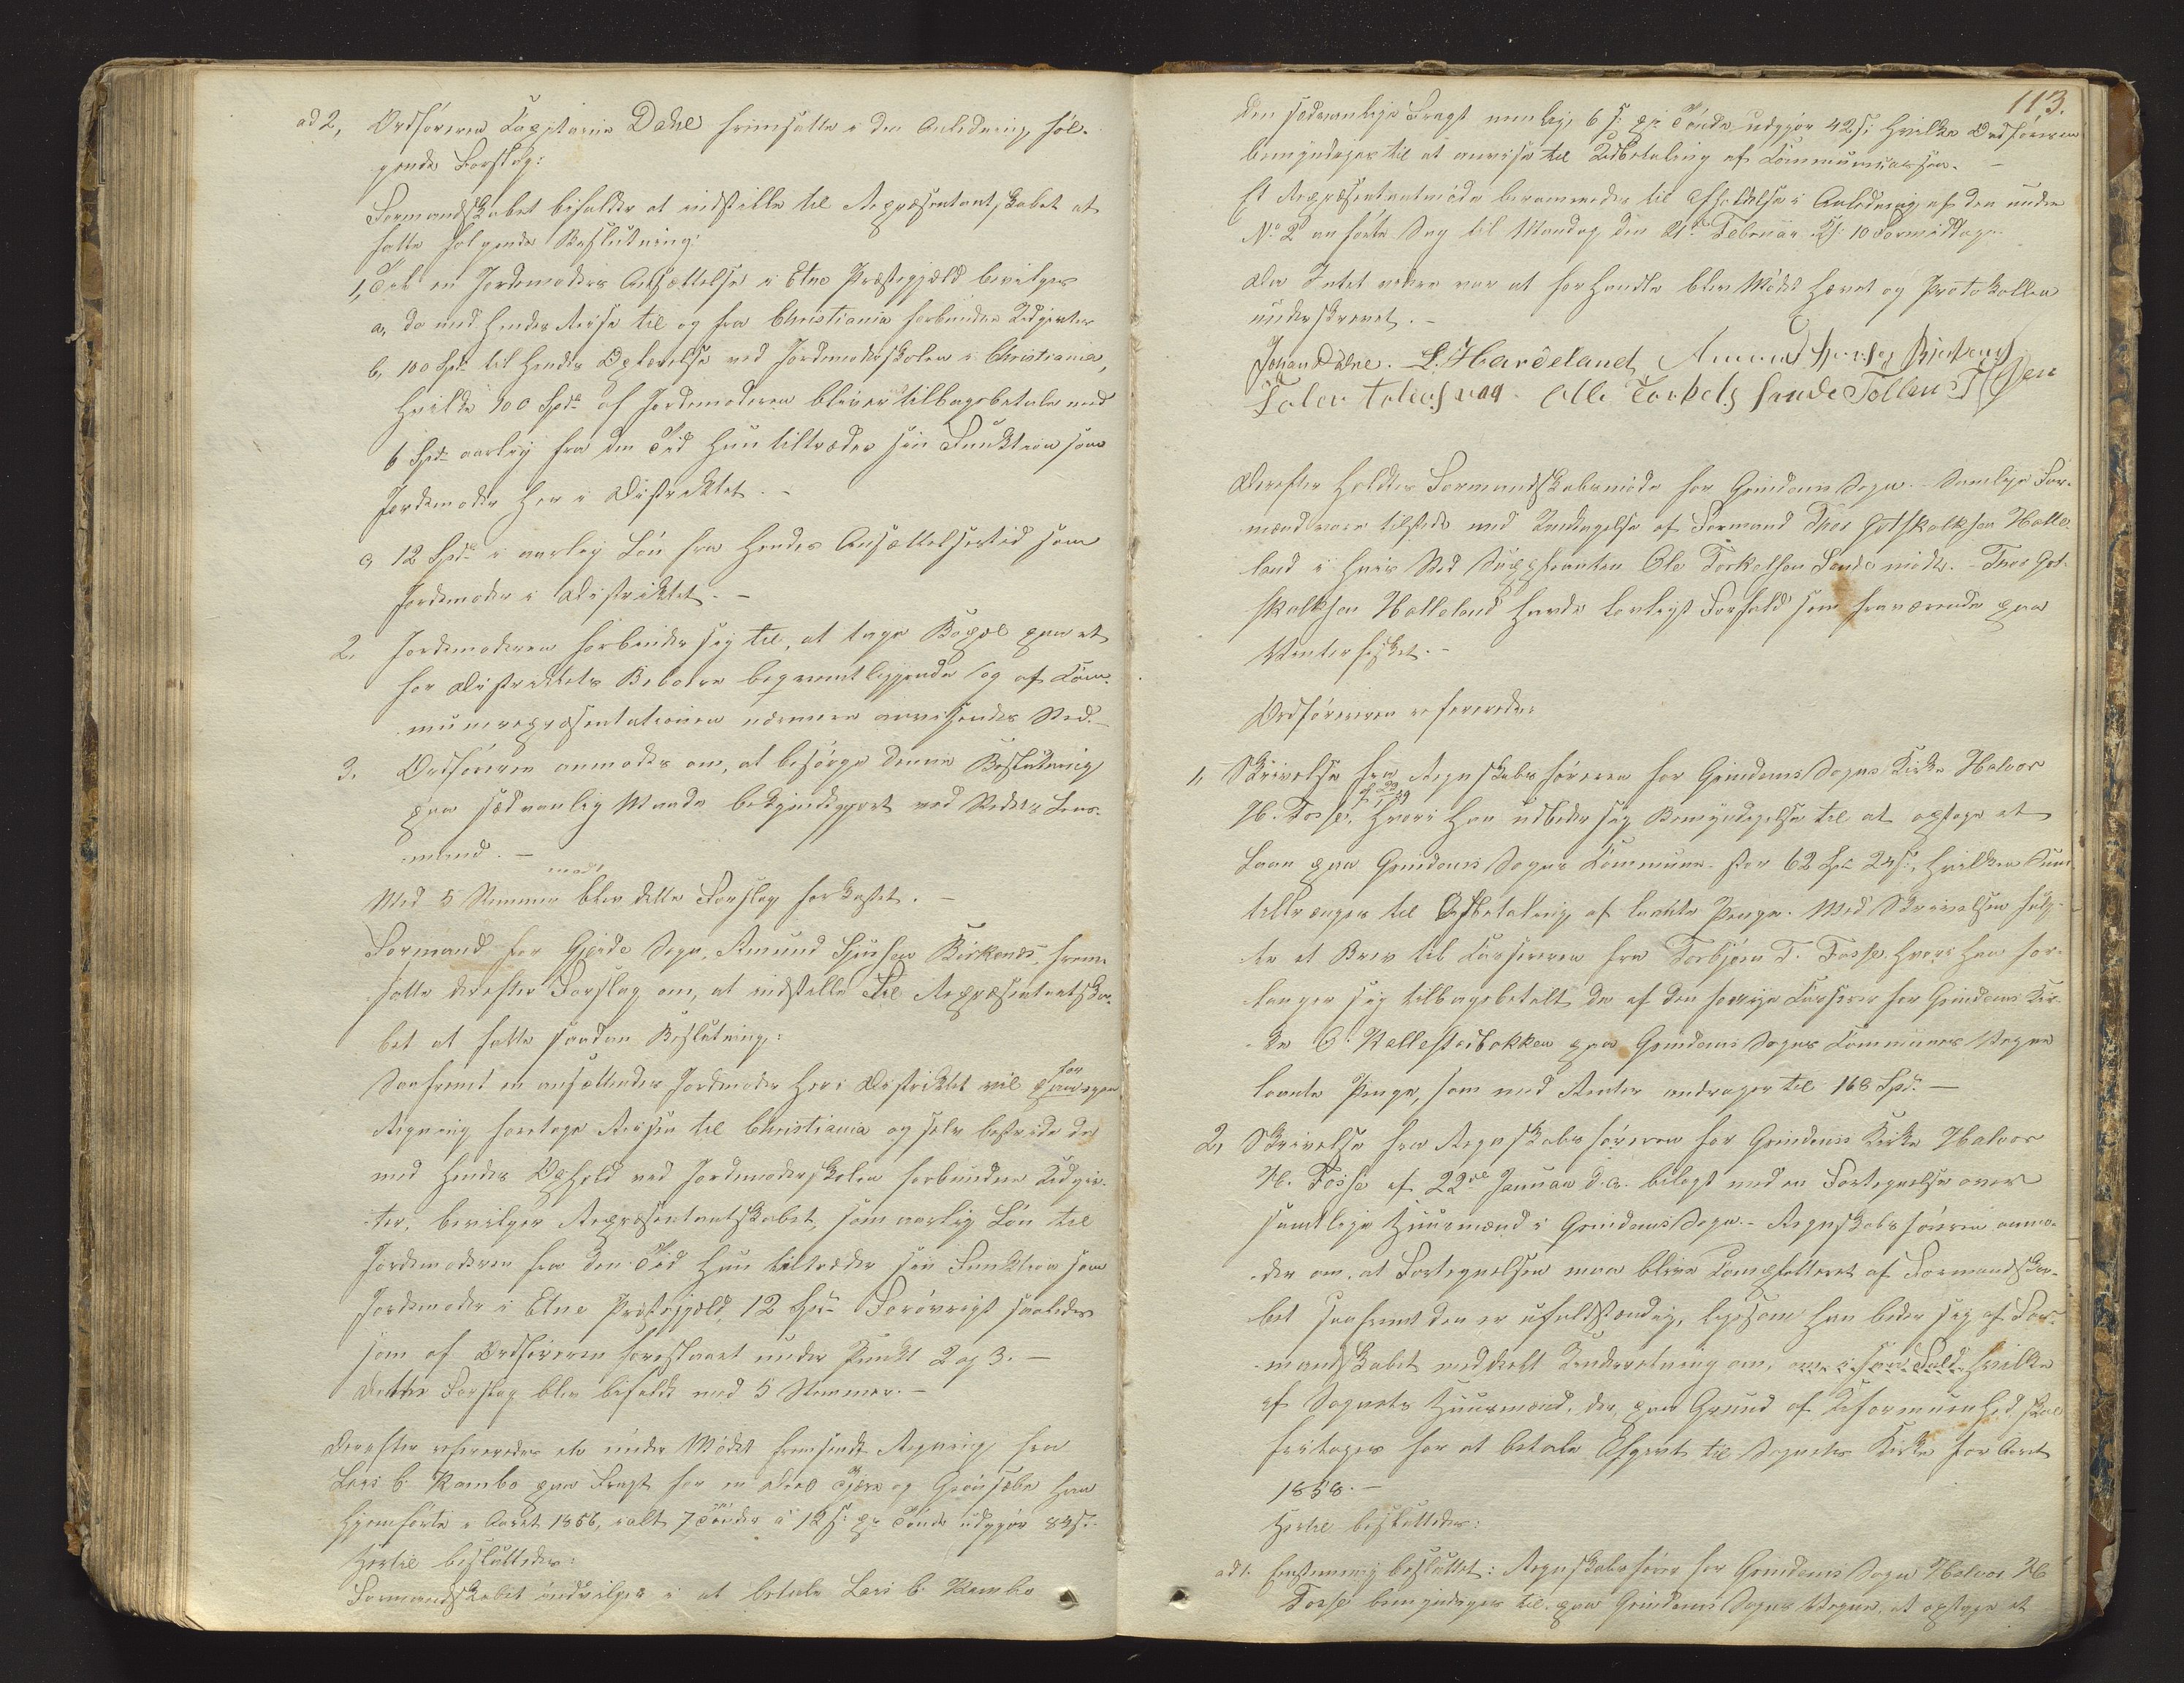 ad 2, Ordføreren Capitaine Dahl fremsatte i den Anledning føl-
gende Forslag:
Formandskabet bifalder at indstille til Repræsentantskabet at
fatte følgende Beslutning:
1, Til en Jordemoders Ansættelse i Etne Præstegjæld bevilges
a, de med hendes Reise til og fra Christiania forbundne Udgivter
b, 100 Spd. til hendes Oplærelse ved Jordemoderskolen i Christiania,
hvilke 100 Spd. af Jordemoderen bliver tilbagebetale med
6 Spd. aarlig fra den Tid hun tiltræder sin Funktion som
Jordemoder her i Distriktet. –
c, 12 Spd. i aarlig Løn fra hendes Ansættelsestid som
Jordemoder i Distriktet. –
2. Jordemoderen forbinder sig til, at tage Bopæl paa et
for Distriktets Beboere beqvemt liggende og af Kom-
munerepræsentationen nærmere anvisendes Sted. –
3. Ordføreren anmodes om, at besørge denne Beslutning
paa sædvanlig Maade bekjendtgjort ved Stedets Lens-
mand. –
Med 5 Stemmer mod 1 blev dette Forslag forkastet. –
Formand for Gjerde Sogn, Amund Sjursen Birkenes, frem-
satte derefter Forslag om, at indstille til Repræsentantska-
bet at fatte saadan Beslutning:
Saafremt en ansættendes Jordemoder her i Distriktet vil for egen
Regning foretage Reisen til Christiania og selv bestride de
med hendes Ophold ved Jordemoderskolen forbundne Udgiv-
ter, bevilger Repræsentantskabet, som aarlig Løn til
Jordemoderen fra den Tid hun tiltræder sin Funktion som
Jordemoder i Etne Præstegjæld, 12 Spd. Forøvrigt saaledes
som af Ordføreren foreslaaet under Punkt 2 og 3. –
Dette Forslag blev bifaldt med 5 Stemmer. –
Derefter refereredes en under Mødet fremsendt Regning fra
Lars C. Rambo paa Fragt for en Deel Tjære og Grønsæbe han
hjemførte i Aaret 1856, ialt 7 Tønder à 12 s. pr Tønde udgjør 84 s. –
Hertil besluttedes:
Formandskabet indvilger i at betale Lars C. Rambo
113.
den sædvanlige Fragt nemlig 6 s. pr. Tønde, udgjør 42 s: hvilke Ordføreren
bemyndiges til at anvise til Udbetaling af Communecassen. –
Et Repræsentantmøde berammedes til Afholdelse i Anledning af den under
No. 2 anførte Sag til Mandag den 21de Februar Kl. 10 Formiddag.
Da Intet videre var at forhandle blev Mødet hævet og Protokollen
underskrevet. –
Johan Dahl. L. Hardeland Amund Sjursen Birkenes
Ole Torkels. Sande
Derefter holdtes Formandskabsmøde for Grindems Sogn. – Samtlige For-
mænd vare tilstede med Undtagelse af Formand Thor Gotskalksen Halle-
land i hvis Sted Suppleanten Ole Torkelsen Sande mødte. – Thor Got-
skalksen Halleland havde lovligt Forfald som fraværende paa
Vinterfisket. –
Ordføreren refererede:
1, Skrivelse fra Regnskabsføreren for Grindems Sogns Kirke Halvor
H. Fosse, hvori han udbeder sig Bemyndigelse til at optage et
Laan paa Grindems Sogns Kommune stor 62 Spd. 24 s., hvilken Sum
tiltrænges til Afbetaling af laante Penge. Med Skrivelsen fulg-
te et Brev til Kassereren fra Torbjørn T. Fosse hvori han for-
langer sig tilbagebetalt de af den forrige Kasserer for Grindems Kir-
ke O. Kallestadbakken paa Grindems Sogns Kommunes Vegne
laante Penge, som med Renter andrager til 168 Spd. –
2, Skrivelse fra Regnskabsføreren for Grindems Kirke Halvor
H. Fosse af 22de Januar d. A. bilagt med en Fortegnelse over
samtlige Huusmænd i Grindems Sogn. – Regnskabsføreren anmo-
der om, at Fortegnelsen maa blive kompletteret af Formandska-
bet saafremt den er ufuldstændig, ligesom han beder sig af For-
mandskabet meddeelt Underretning om, hvilke
af Sognets Huusmænd, der paa Grund af Uformuenhed skal
fritages for at betale Afgivt til Sognets Kirke for Aaret
1858. –
Hertil besluttedes:
ad 1. Eenstemmig besluttet: Regnskabsfører for Grindems Sogn Halvor H
Fosse bemyndiges til, paa Grindems Sogns Vegne, at optage et